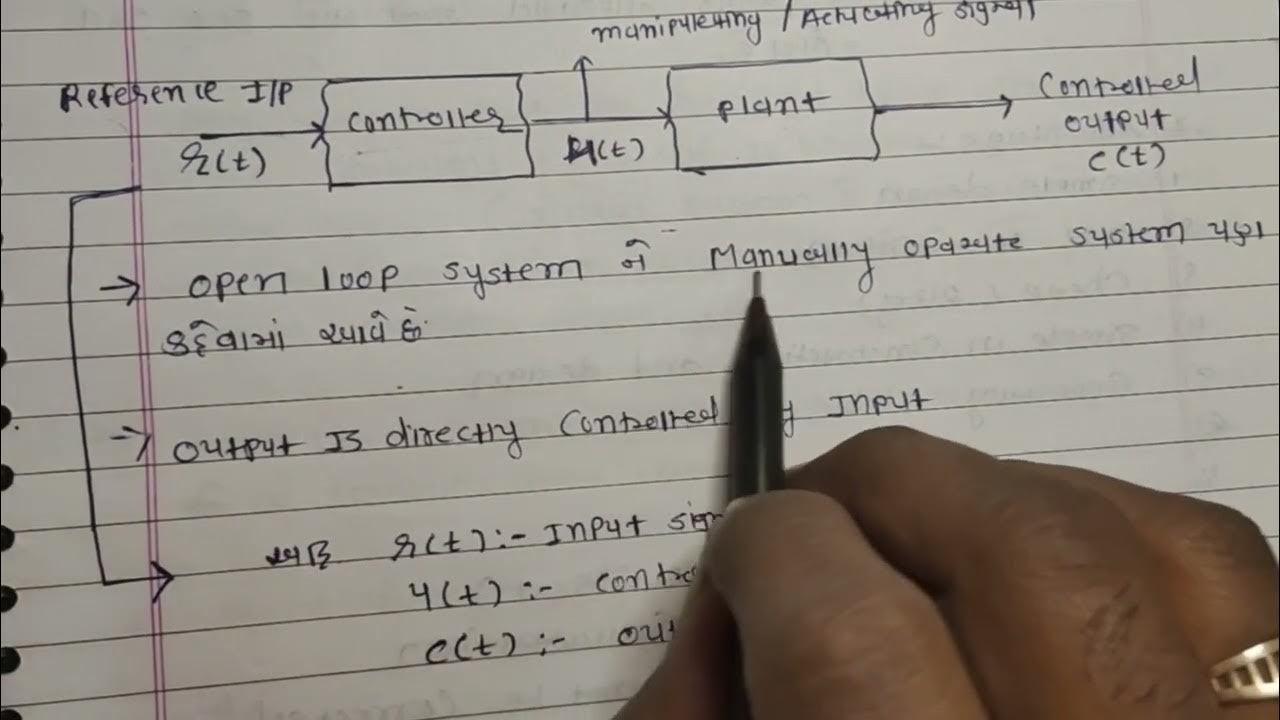 manipulating / Actuating signal
Reference I/P
controller
plant
Controlled
output
r(t)
u(t)
c(t)
→ open loop system ને Manually operate system પણ
કહેવામાં આવે છે.
→ output Is directly controlled by Input
અહિં r(t) :- Input
u(t) :-
c(t) :-